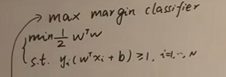 max margin classifier
min 1/2 wᵀw
s.t. yᵢ(wᵀxᵢ + b) ≥ 1, i=1,…,N